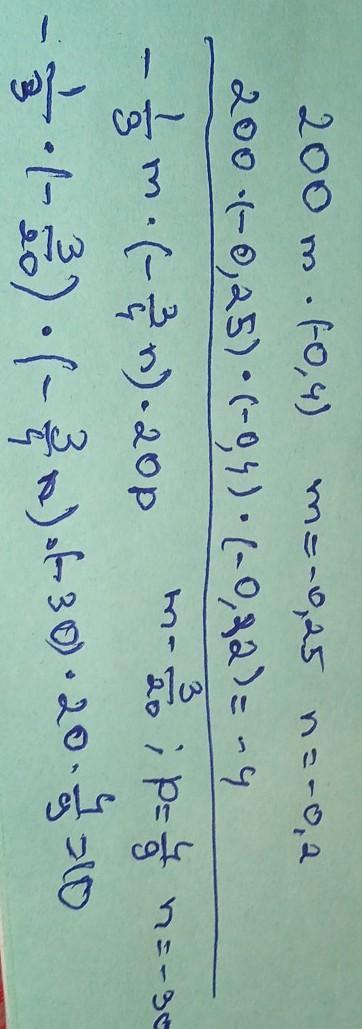 200 m · (-0,4) m = -0,25 n = -0,2
200 · (-0,25) · (-0,4) · (-0,2) = -4
- 1/3 m · (- 3/4 n) · 20p m - 3/20 ; p = 4/9 n = -30
- 1/3 · (- 3/20) · (- 3/4 n) · (-30) · 20 · 4/9 = 10